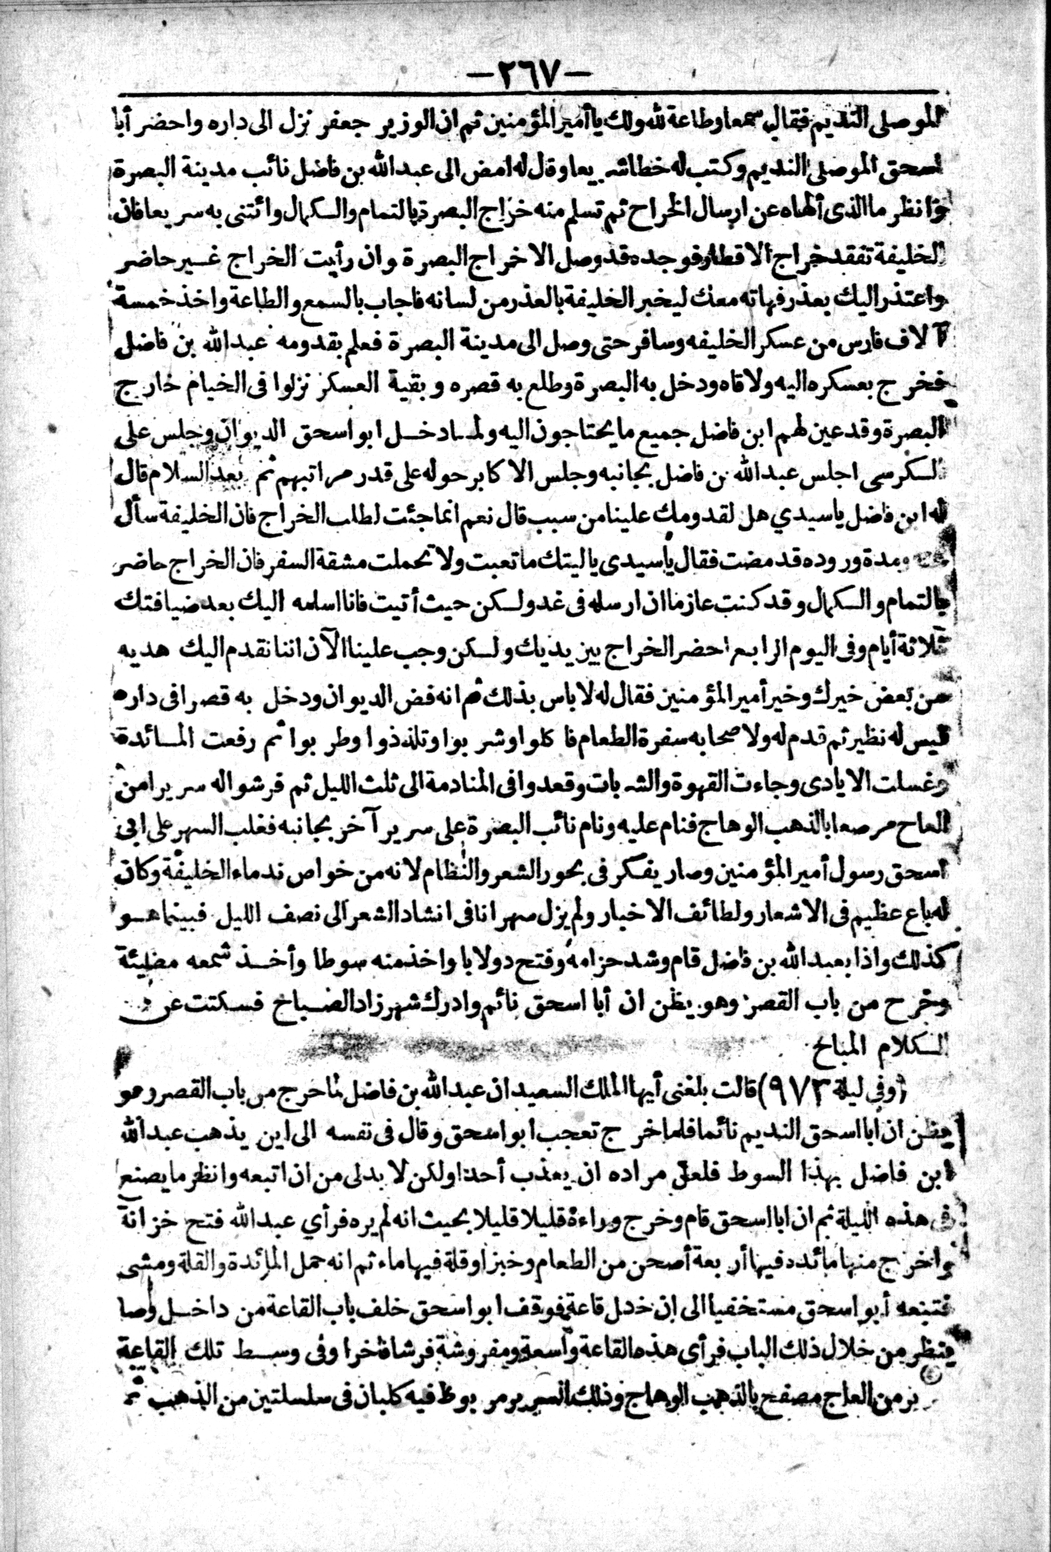 -٢٦٧-
الموصلى النديم فقال سمعا وطاعة لله ولك يا أمير المؤمنين ثم ان الوزير جعفر نزل الى داره واحضر أبا
اسحق الموصلى النديم وكتب له خطا شريعا وقال له امض الى عبد الله بن فاضل نائب مدينة البصرة
وانظر ما الذى ألهاه عن ارسال الخراج ثم تسلم منه خراج البصرة بالتمام والكمال وائتنى به سريعا فان
الخليفة تفقد خراج الاقطار فوجده قد وصل الاخراج البصرة وان رأيت الخراج غير حاضر
واعتذر اليك بعذر فهاته معك ليخبر الخليفة بالعذر من لسانه فاجاب بالسمع والطاعة واخذ خمسة
آلاف فارس من عسكر الخليفه وسافر حتى وصل الى مدينة البصرة فعلم بقدومه عبد الله بن فاضل
فخرج بعسكره اليه ولاقاه ودخل به البصرة وطلع به قصره وبقية العسكر نزلوا فى الخيام خارج
البصرة وقد عين لهم ابن فاضل جميع ما يحتاجون اليه ولما دخل ابو اسحق الديوان وجلس على
الكرسى اجلس عبد الله بن فاضل بجانبه وجلس الاكابر حوله على قدر مراتبهم ثم بعد السلام قال
له ابن فاضل ياسيدي هل لقدومك علينا من سبب قال نعم انما جئت لطلب الخراج فان الخليفة سأل
عنه ومدة وروده قد مضت فقال ياسيدى ياليتك ما تعبت ولا تحملت مشقة السفر فان الخراج حاضر
بالتمام والكمال وقد كنت عازما ان ارسله فى غد ولكن حيث أتيت فانا اسلمه اليك بعد ضيافتك
ثلاثة أيام وفى اليوم الرابع احضر الخراج بين يديك ولكن وجب علينا الآن اننا نقدم اليك هديه
من بعض خيرك وخير أمير المؤمنين فقال له لا باس بذلك ثم انه فض الديوان ودخل به قصرا فى داره
ليس له نظير ثم قدم له ولا صحابه سفرة الطعام فا كلوا وشربوا وتلذذوا وطربوا ثم رفعت المائدة
وغسلت الايادى وجاءت القهوة والشربات وقعدوا فى المنادمة الى ثلث الليل ثم فرشوا له سريرا من
العاج مرصعا بالذهب الوهاج فنام عليه ونام نائب البصرة على سرير آخر بجانبه فغلب السهر على ابى
اسحق رسول أمير المؤمنين وصار يفكر فى بحور الشعر والنظام لانه من خواص ندماء الخليفة وكان
له باع عظيم فى الاشعار ولطائف الاخبار ولم يزل سهرانا فى انشاد الشعر الى نصف الليل فبينما هو
كذلك واذا بعبد الله بن فاضل قام وشد حزامه وفتح دولابا واخذ منه سوطا وأخذ شمعه مضيئة
وخرج من باب القصر وهو يظن ان أبا اسحق نائم وادرك شهرزاد الصباح فسكتت عن
الكلام المباح
(وفى ليلة ٩٧٣) قالت بلغنى أيها الملك السعيد ان عبد الله بن فاضل لما خرج من باب القصر وهو
يظن ان ابا اسحق النديم نائما فلما خرج تعجب ابو اسحق وقال فى نفسه الى اين يذهب عبد الله
ابن فاضل بهذا السوط فلعل مراده ان يعذب أحدا ولكن لا بد لى من ان اتبعه وانظر ما يصنع
فى هذه الليلة ثم ان ابا اسحق قام وخرج وراءه قليلا قليلا بحيث انه لم يره فرأي عبد الله فتح خزانة
واخرج منها مائده فيها أربعة أصحن من الطعام وخبزا وقلة فيها ماء ثم انه حمل المائدة والقلة ومشى
فتبعه أبو اسحق مستخفيا الى ان دخل قاعة فوقف ابو اسحق خلف باب القاعة من داخل وصا
ينظر من خلال ذلك الباب فرأى هذه القاعة واسعة ومفروشة فرشا فخرا وفى وسط تلك القاعة
ير من العاج مصفح بالذهب الوهاج وذلك السرير مربوط فيه كلبان فى سلسلتين من الذهب ثم